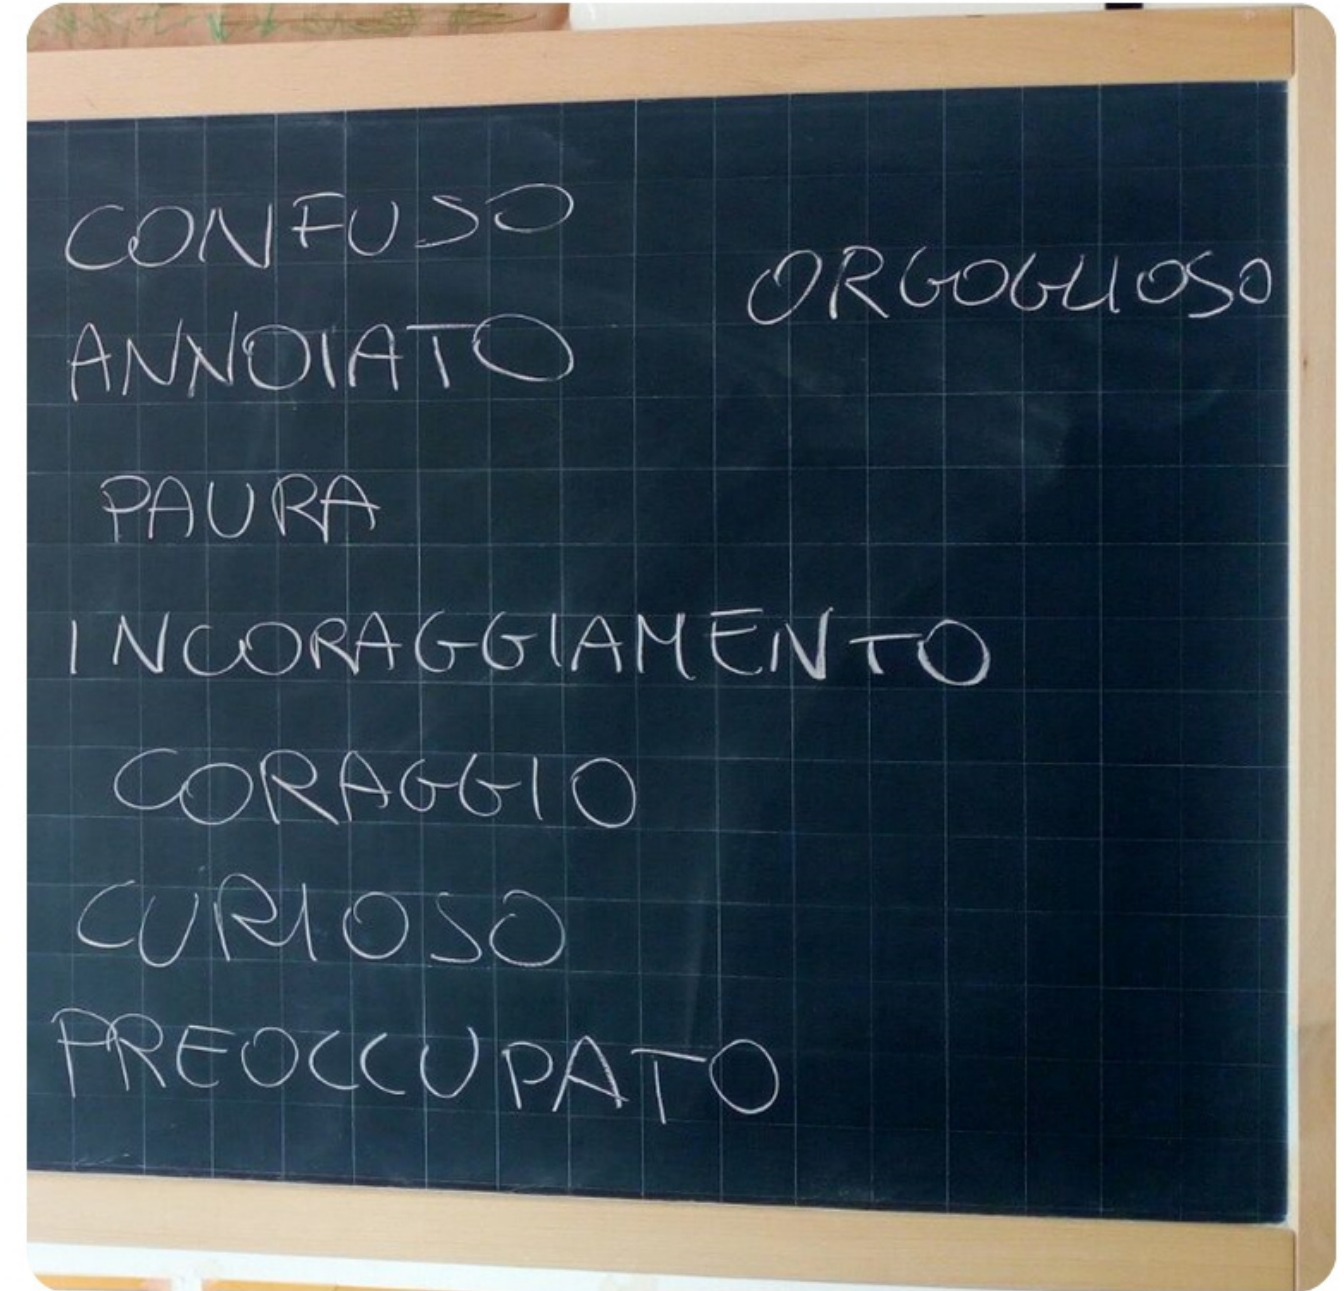 CONFUSO
ORGOGLIOSO
ANNOIATO
PAURA
INCORAGGIAMENTO
CORAGGIO
CURIOSO
PREOCCUPATO